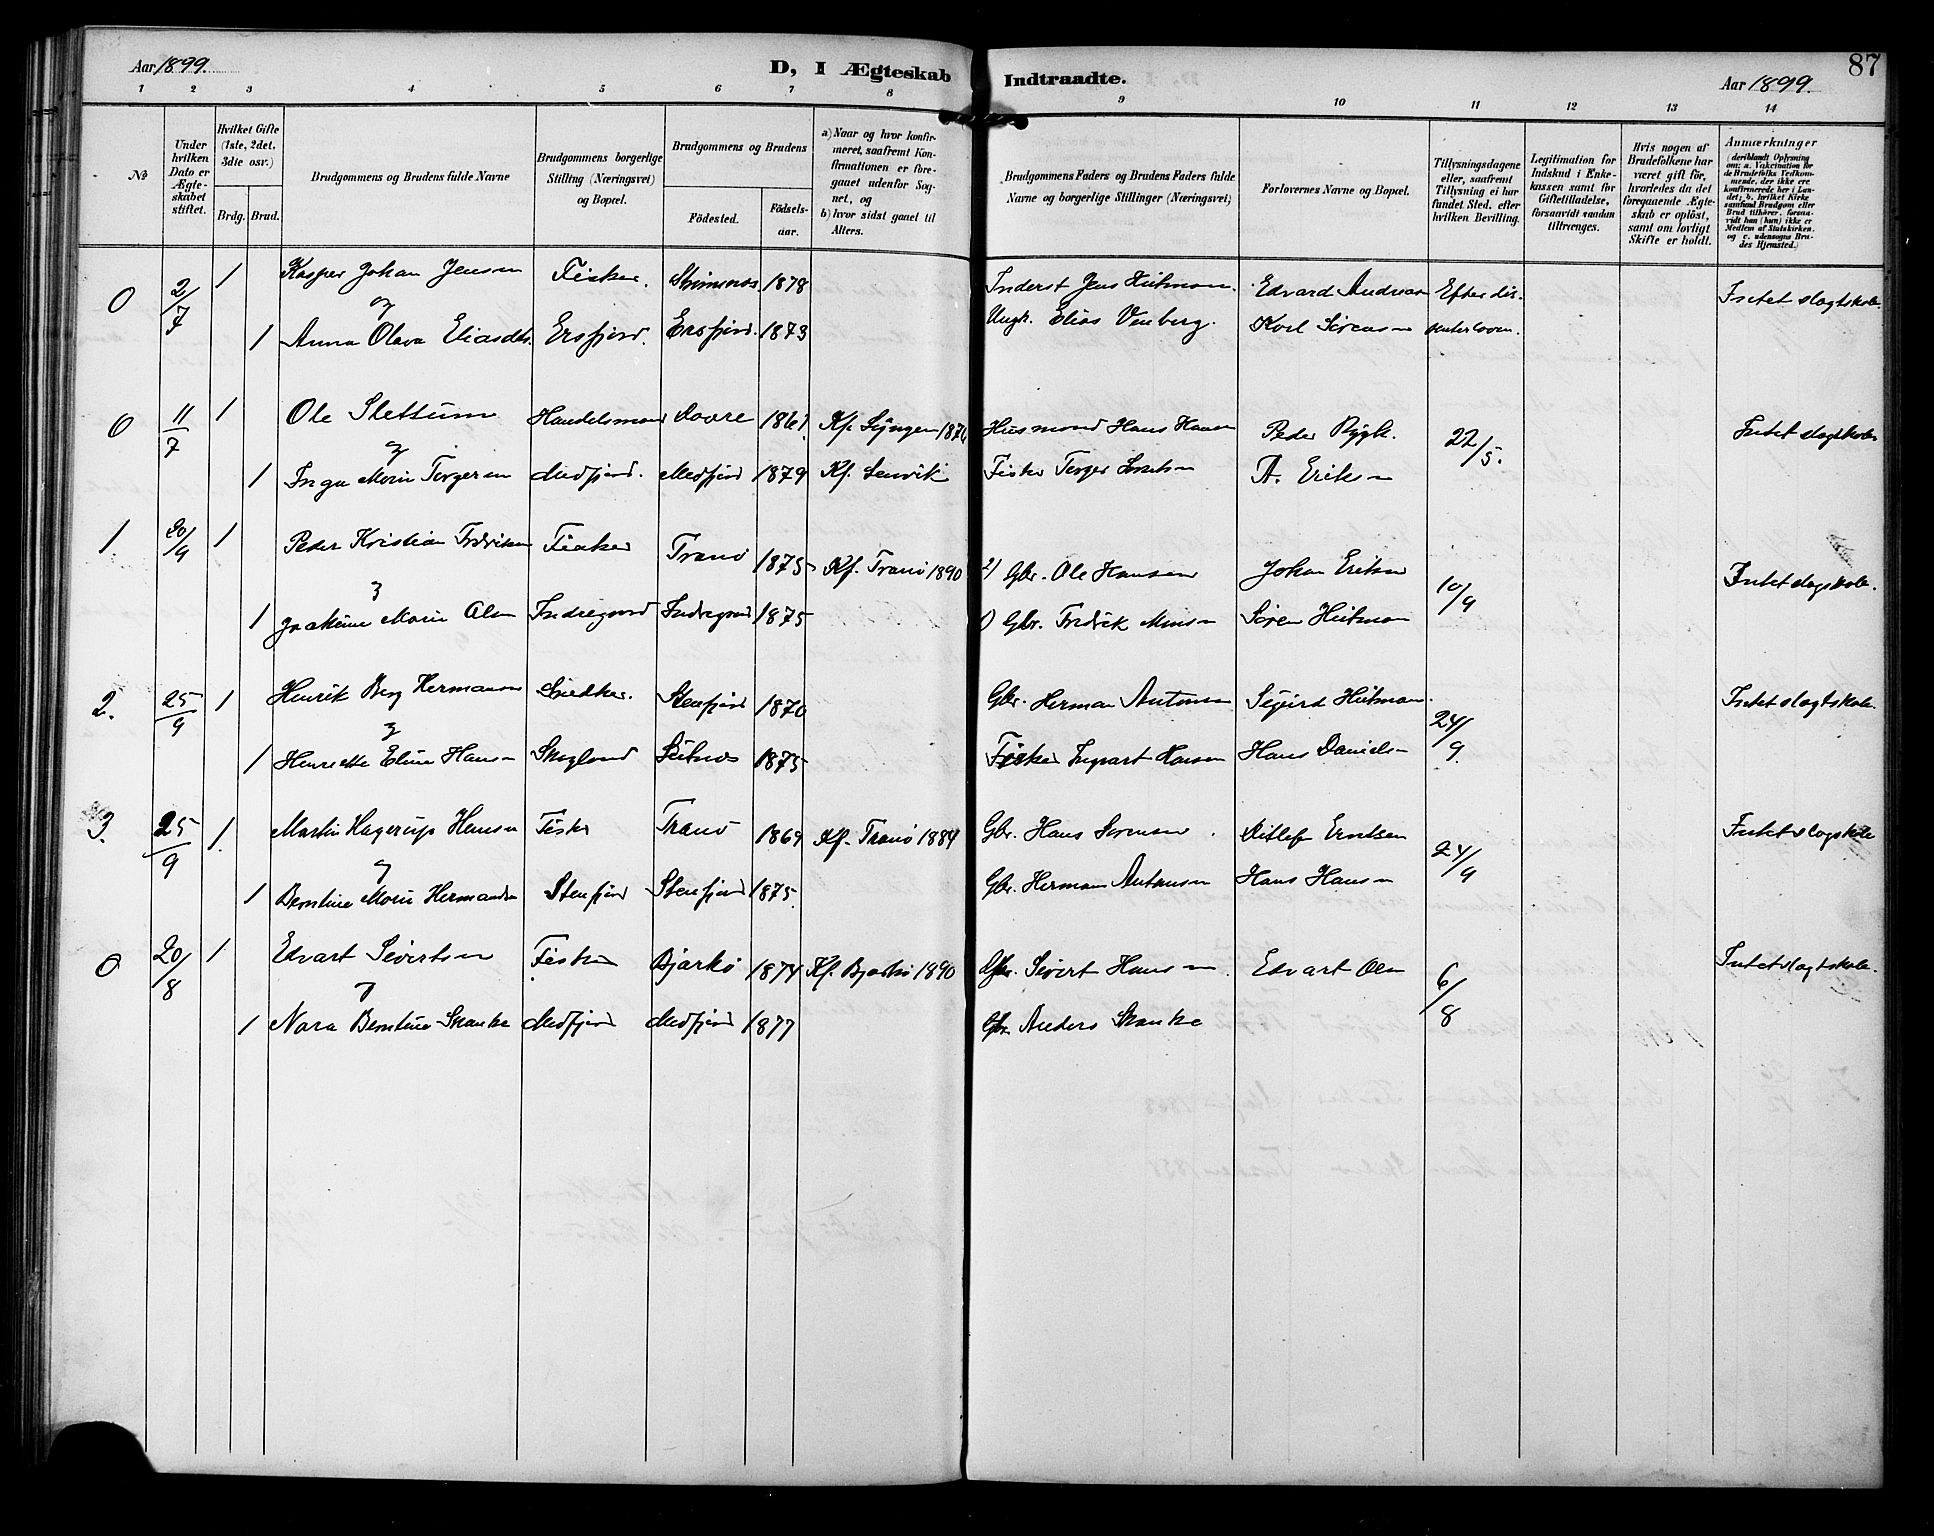 Aar 1899.
D, I Ægteskab
Indtraadte.
87
Aar 1899.
1 2 3 4 5 6 7 8 9 10 11 12 13 14
No
Under hvilken Dato er Ægteskabet stiftet.
Hvilket Gifte (1ste, 2det, 3die osv.)
Brdg. Brud.
Brudgommens og Brudens fulde Navne
Brudgommens borgerlige Stilling (Næringsvei) og Bopæl.
Brudgommens og Brudens
Födested.
Födselsaar.
a) Naar og hvor konfirmeret, saafremt Konfirmationen er foregaaet udenfor Sognet, og
b) hvor sidst gaaet til Alters.
Brudgommens Faders og Brudens Faders fulde Navne og borgerlige Stillinger (Næringsvei)
Forlovernes Navne og Bopæl.
Tillysningsdagene eller, saafremt Tillysning ei har fundet Sted, efter hvilken Bevilling.
Legitimation for Indskud i Enkekassen samt for Giftetilladelse, forsaavidt saadan tiltrænges.
Hvis nogen af Brudefolkene har været gift för, hvorledes da det foregaaende Ægteskab er oplöst, samt om lovligt Skifte er holdt.
Anmærkninger
(deriblandt Oplysning om: a. Vakcination for de Brudefolks Vedkommende, der ikke ere konfirmerede her i Landet; b. hvilket Kirkesamfund Brudgom eller Brud tilhörer, forsaavidt han (hun) ikke er Medlem af Statskirken, og c. udensogns Brudes Hjemsted.)
0 2/7 1 Kasper Johan Jensen Fisker. 1878 Inderst Jens Hitman. Edvard Andreas Efter dis- Intet slægtskab
og
1 Anna Olava Eliasdtr. Ersfjord. Ersfjord. 1873 Ungk. Elias Vinberg. Karl Sörensn senterloven.
0 11/7 1 Ole Slettum Handelsmand Dovre Kf. Lyngen Husmand Hans Peder Rygh. 22/5. Intet slægtskab
og
1 Inga Marie Torgersen Medfjord. Medfjord 1879 Kf. Lenvik Fisker Torger A. Eriksn
1. 20/9 1 Peder Kristian Fredriksen Fisker Tranö 1875 Kf. Tranö 1890 2) Gbr. Ole Hansen Johan Eriksn 10/9 Intet slægtskab.
og
1 Joakime Marie Olsn Indregaard Indregaard 1875 1) Gbr. Fredrik Sören Hitman
2. 25/9 1 Henrik Berg Hermansen Snedker. Stenfjord 1870 Gbr. Herman Antonsen Sigurd Hitman. 24/9 Intet slægtskab
og
1 Henriette Eline Hansn Skogland 1875 Fisker Ingvart Hansen Hans Danielsn
3. 25/9 1. Martin Hagerup Hansn Fisker Tranö 1869 Kf. Tranö 1884 Gbr. Hans Sörensen. Ditlef Erntsen 24/9 Intet slægtskab
og
1 Berntine Marie Hermansdtr Stenfjord Stenfjord 1875. Gbr. Herman Antonsn Hans Hansn
0 20/8 1 Edvart Sivertsen Fisker Bjarkö 1874 Kf. Bjarkö 1890 Gbr. Sivert Hansn. Edvart Olsn 6/8 Intet slægtskab.
og
1 Nora Berntine Skanke Medfjord Medfjord 1877 Gbr. Anders Skanke